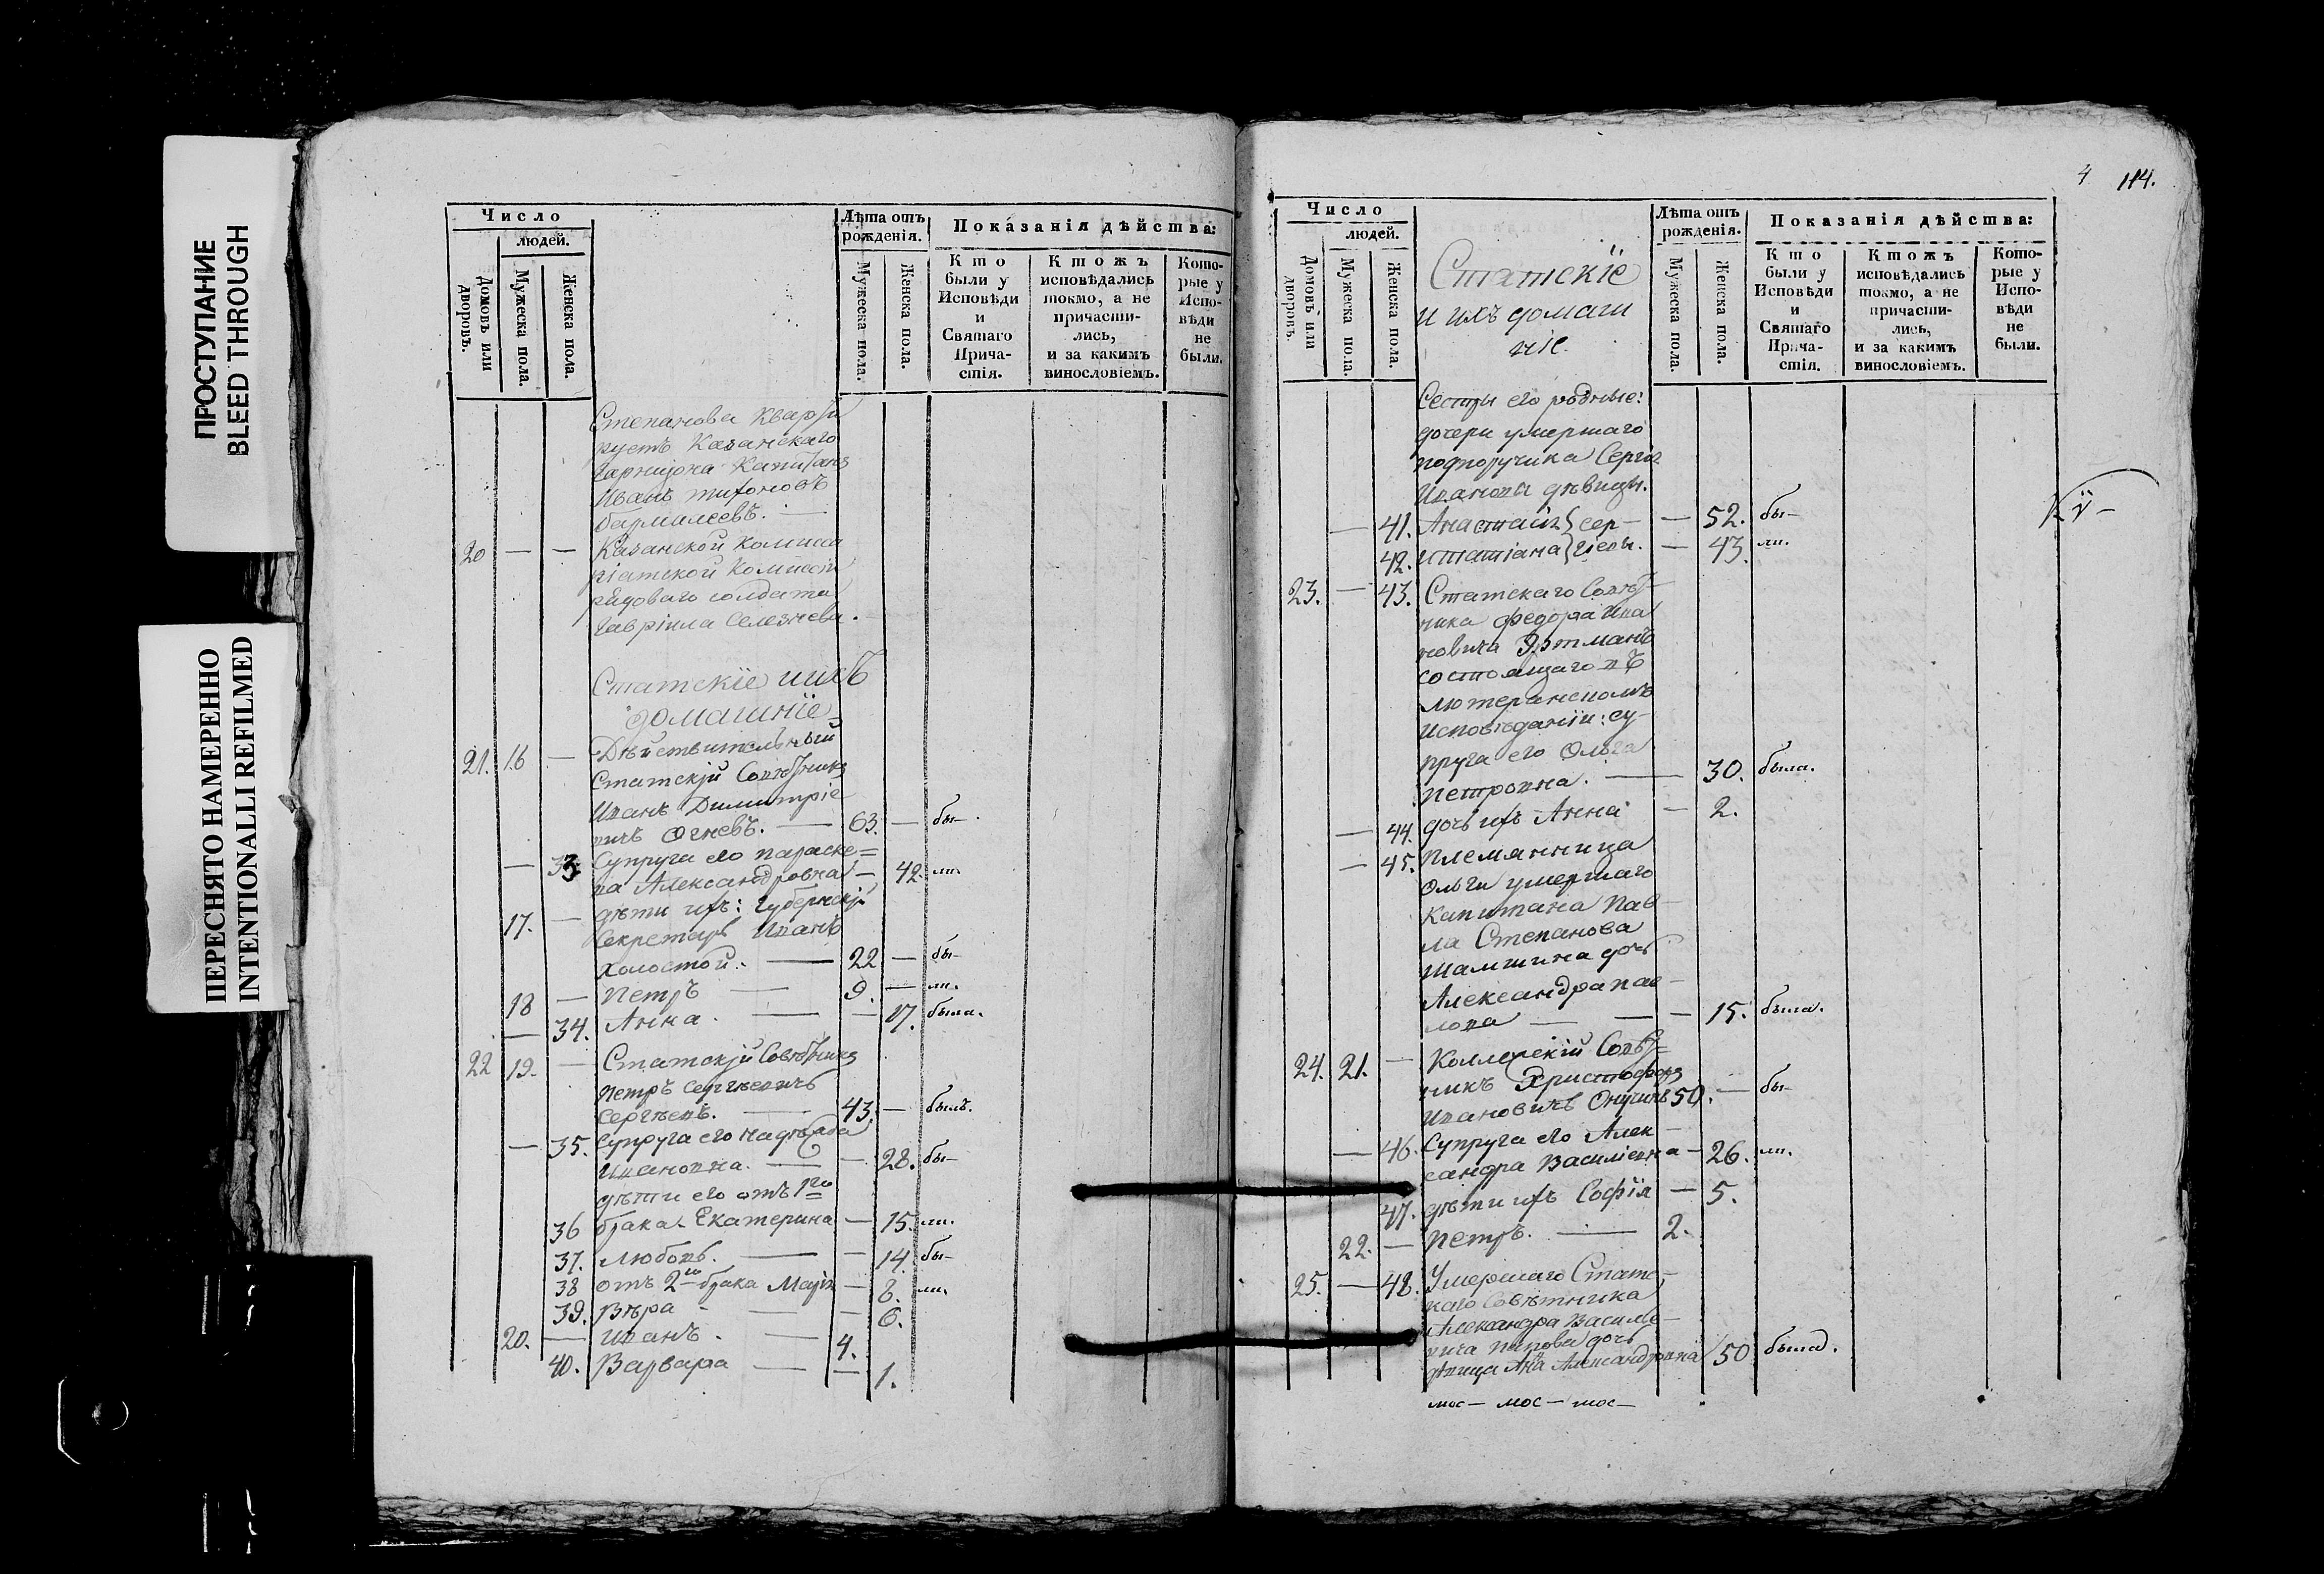 ПРОСТУПАНИЕ
BLEED THROUGH
ПЕРЕСНЯТО НАМЕРЕННО
INTENTIONALLI REFILMED
Число
людей.
Домовъ или дворовъ.
Мужеска пола.
Женска пола.
Лѣта отъ рожденія.
Мужеска пола.
Женска пола.
Показанія дѣйства:
Кто были у Исповѣди и Святаго Причастія.
Ктожъ исповѣдались токмо, а не причастились, и за какимъ винословіемъ.
Которые у Исповѣди не были.
Степанова Кварти
руетъ Казанскаго
Гарнизона Капитанъ
Иванъ Тихоновъ
20 — — Казанской Комиса
ріатской Комиссіи
рядоваго солдата
Гавріила Селезнева.
Статскіе ихъ
домашніе
21. 16 — Дѣйствительный
Статскій Совѣтникъ
Иванъ Димитріе
вичъ Огневъ. — 63. — бы—
— 33 Супруга его Параске=
ва Александровна — 42 ли
17. — дѣти ихъ: Губернскій
Секретарь Иванъ
холостой. — 22 — бы—
18 — Петръ — 9. — ли.
— 34. Анна. — — 17. была.
22 19. — Статскій Совѣтникъ
Петръ Сергѣевичъ
Сергѣевъ. — 43. — былъ.
— 35. Супруга его Надѣжда
Ивановна. — — 28. бы—
дѣти его отъ 1го
36 брака. Екатерина — 15. ли.
37. Любовь. — — 14. бы—
38 отъ 2го брака Марія — 8. ли.
39. Вѣра — — 6.
20. — Иванъ. — 4.
40. Варвара — — 1.
4 114.
Число
людей.
Домовъ или дворовъ.
Мужеска пола.
Женска пола.
Статскіе
и ихъ домаш
ніе.
Лѣта отъ рожденія.
Мужеска пола.
Женска пола.
Показанія дѣйства:
Кто были у Исповѣди и Святаго Причастія.
Ктожъ исповѣдались токмо, а не причастились, и за какимъ винословіемъ.
Которые у Исповѣди не были.
Сестры его родные:
дочери умершаго
подпоручика Сергія
Иванова дѣвицы.
— 41. Анастасія — 52. бы—
42. и Татіана — 43. ли.
23. — 43. Статскаго Совѣт
ника Федора Ива
новича Эртмана
состоящаго въ
лютеранскомъ
исповѣданіи: су—
пруга его Ольга
Петровна. — 30. была.
— 44. дочь ихъ Анна — 2.
— 45. племянница
Ольги умершаго
Капитана Пав—
ла Степанова
Шамшина дочь
Александра Пав—
лова — — 15. была.
24. 21. — Коллежскій Совѣт=
никъ Христофоръ
Ивановичъ 50. — бы—
— 46. Супруга его Алек—
сандра Василіевна — 26. ли.
47. дѣти ихъ Софія — 5.
22. — Петръ. — 2.
25. — 48. Умершаго Статс—
каго Совѣтника
Александра Василье—
вича Попова дочь
дѣвица Анна Александровна 50 была.